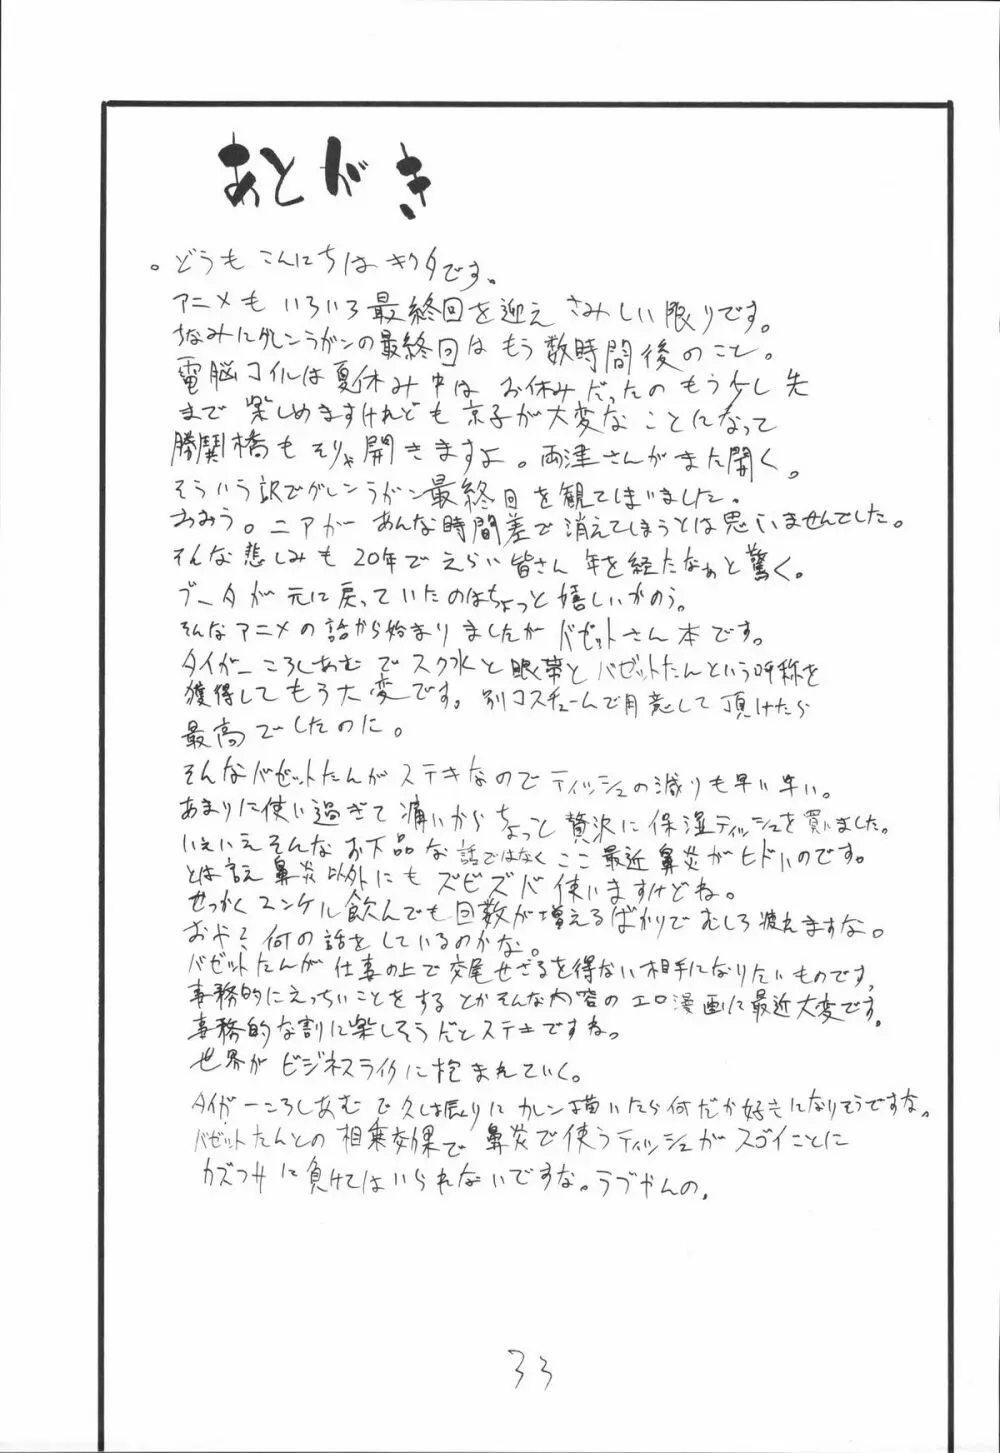 あとがき
。どうも こんにちは キクタです。
アニメも いろいろ最終回を迎え さみしい限りです。
ちなみにグレンラガンの最終回は もう数時間後のこと。
電脳コイルは夏休み中は お休みだったの もう少し先
まで楽しめますけれども 京子が大変な ことになって
勝鬨橋もそりゃ開きますよ。両津さんがまた開く。
そういう訳でグレンラガン最終回を観てしまいました。
おおう。ニアが あんな時間差で消えてしまうとは思いませんでした。
そんな悲しみも 20年でえらい皆さん 年を経たなぁと驚く。
ブータが 元に戻っていたのはちょっと嬉しいかのう。
そんなアニメの話から始まりましたが バゼットさん本です。
タイガーころしあむ でスク水と眼帯と バゼットたんという呼称を
獲得してもう大変です。別コスチュームで用意して頂けたら
最高でしたのに。
そんなバゼットたんがステキなので ティッシュの減りも早い早い。
あまりに使い過ぎて痛いからちょっと贅沢に保湿ティッシュを買いました。
いえいえそんなお下品な話ではなくここ最近鼻炎がヒドいのです。
とは言え鼻炎以外にもズビズバ使いますけどね。
せっかくユンケル飲んでも回数が増えるばかりでむしろ疲れますな。
おや?何の話をしているのかな。
バゼットたんが仕事の上で交尾せざるを得ない相手になりたいものです。
事務的にえっちいことをする とかそんな内容のエロ漫画に最近大変です。
事務的な割に楽しそうだとステキですね。
世界がビジネスライクに抱まれていく。
タイガーころしあむで久し振りにカレン描いたら何だか好きになりそうですな。
バゼットたんとの相乗効果で鼻炎で使うティッシュがスゴイことに
カズフサに負けてはいられないですな。ラブやんの。
33